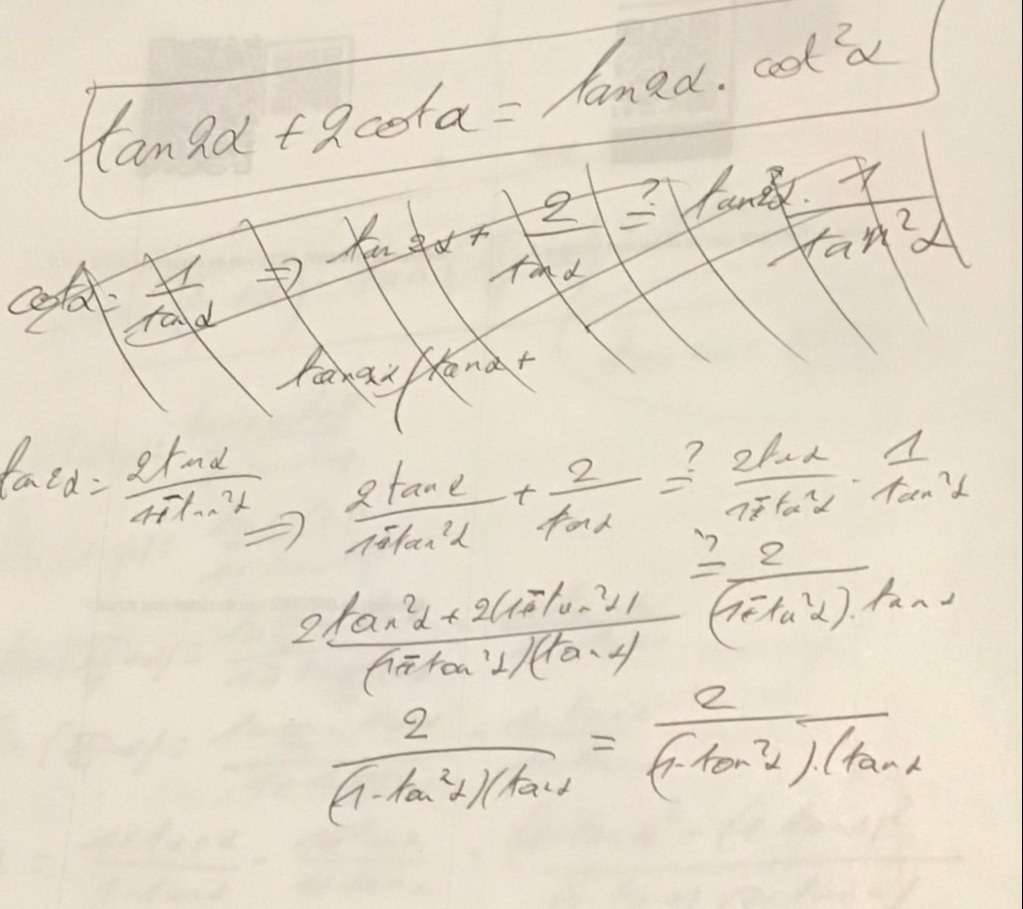 tan2α + 2cotα = tan2α · cot²α
cotα = 1/tanα ⇒ tan2α + 2/tanα ≟ tan2α · 1/tan²α
tan2α (tanα +
tan2α = 2tanα/1-tan²α ⇒ 2tanα/1-tan²α + 2/tanα ≟ 2tanα/1-tan²α · 1/tan²α
2tan²α + 2(1-tan²α)/(1-tan²α)(tanα) ≟ 2/(1-tan²α).tanα
2/(1-tan²α)(tanα = 2/(1-tan²α).(tanα